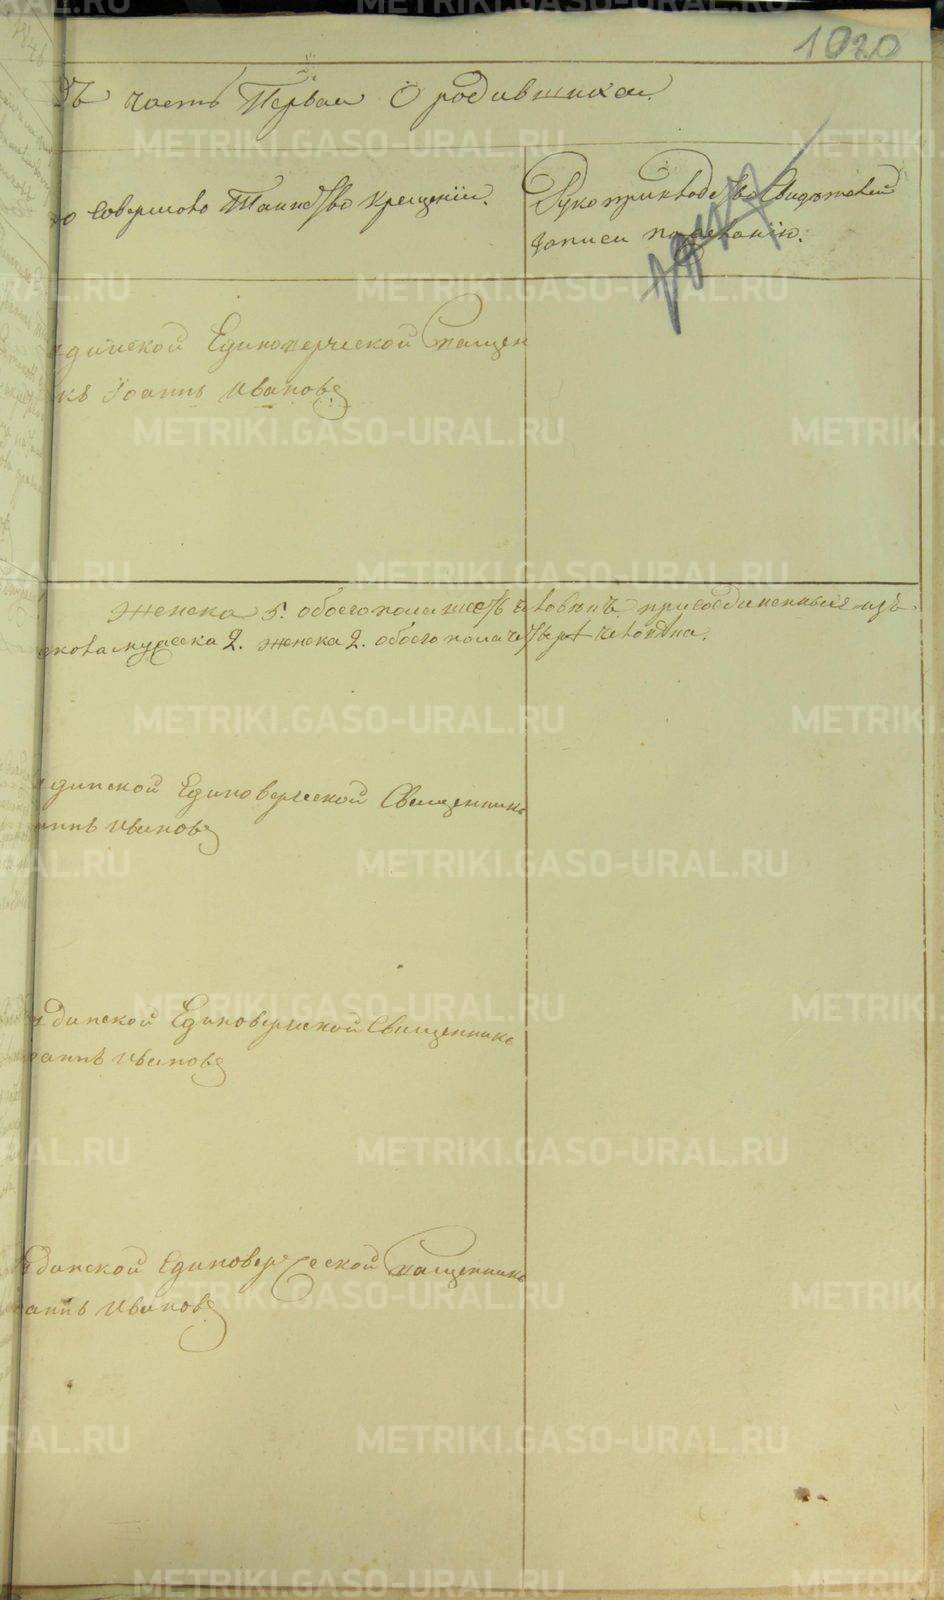 1020
дъ часть Первая О родившихся.
но Совершово Таинство Крещенія.
Рукоприкладство Свидѣтелей
записи по желанію.
динской Единоверческой Священ
къ Іоаннъ Ивановъ
женска 5. обоего пола шесть человѣкъ присоединенныхъ изъ
мужеска 2. женска 2. обоего пола четыре человѣка.
динской Единоверческой Священникъ
аннъ Ивановъ
динской Единоверческой Священникъ
оаннъ Ивановъ
динской Единоверческой Священникъ
аннъ Ивановъ
METRIKI.GASO-URAL.RU